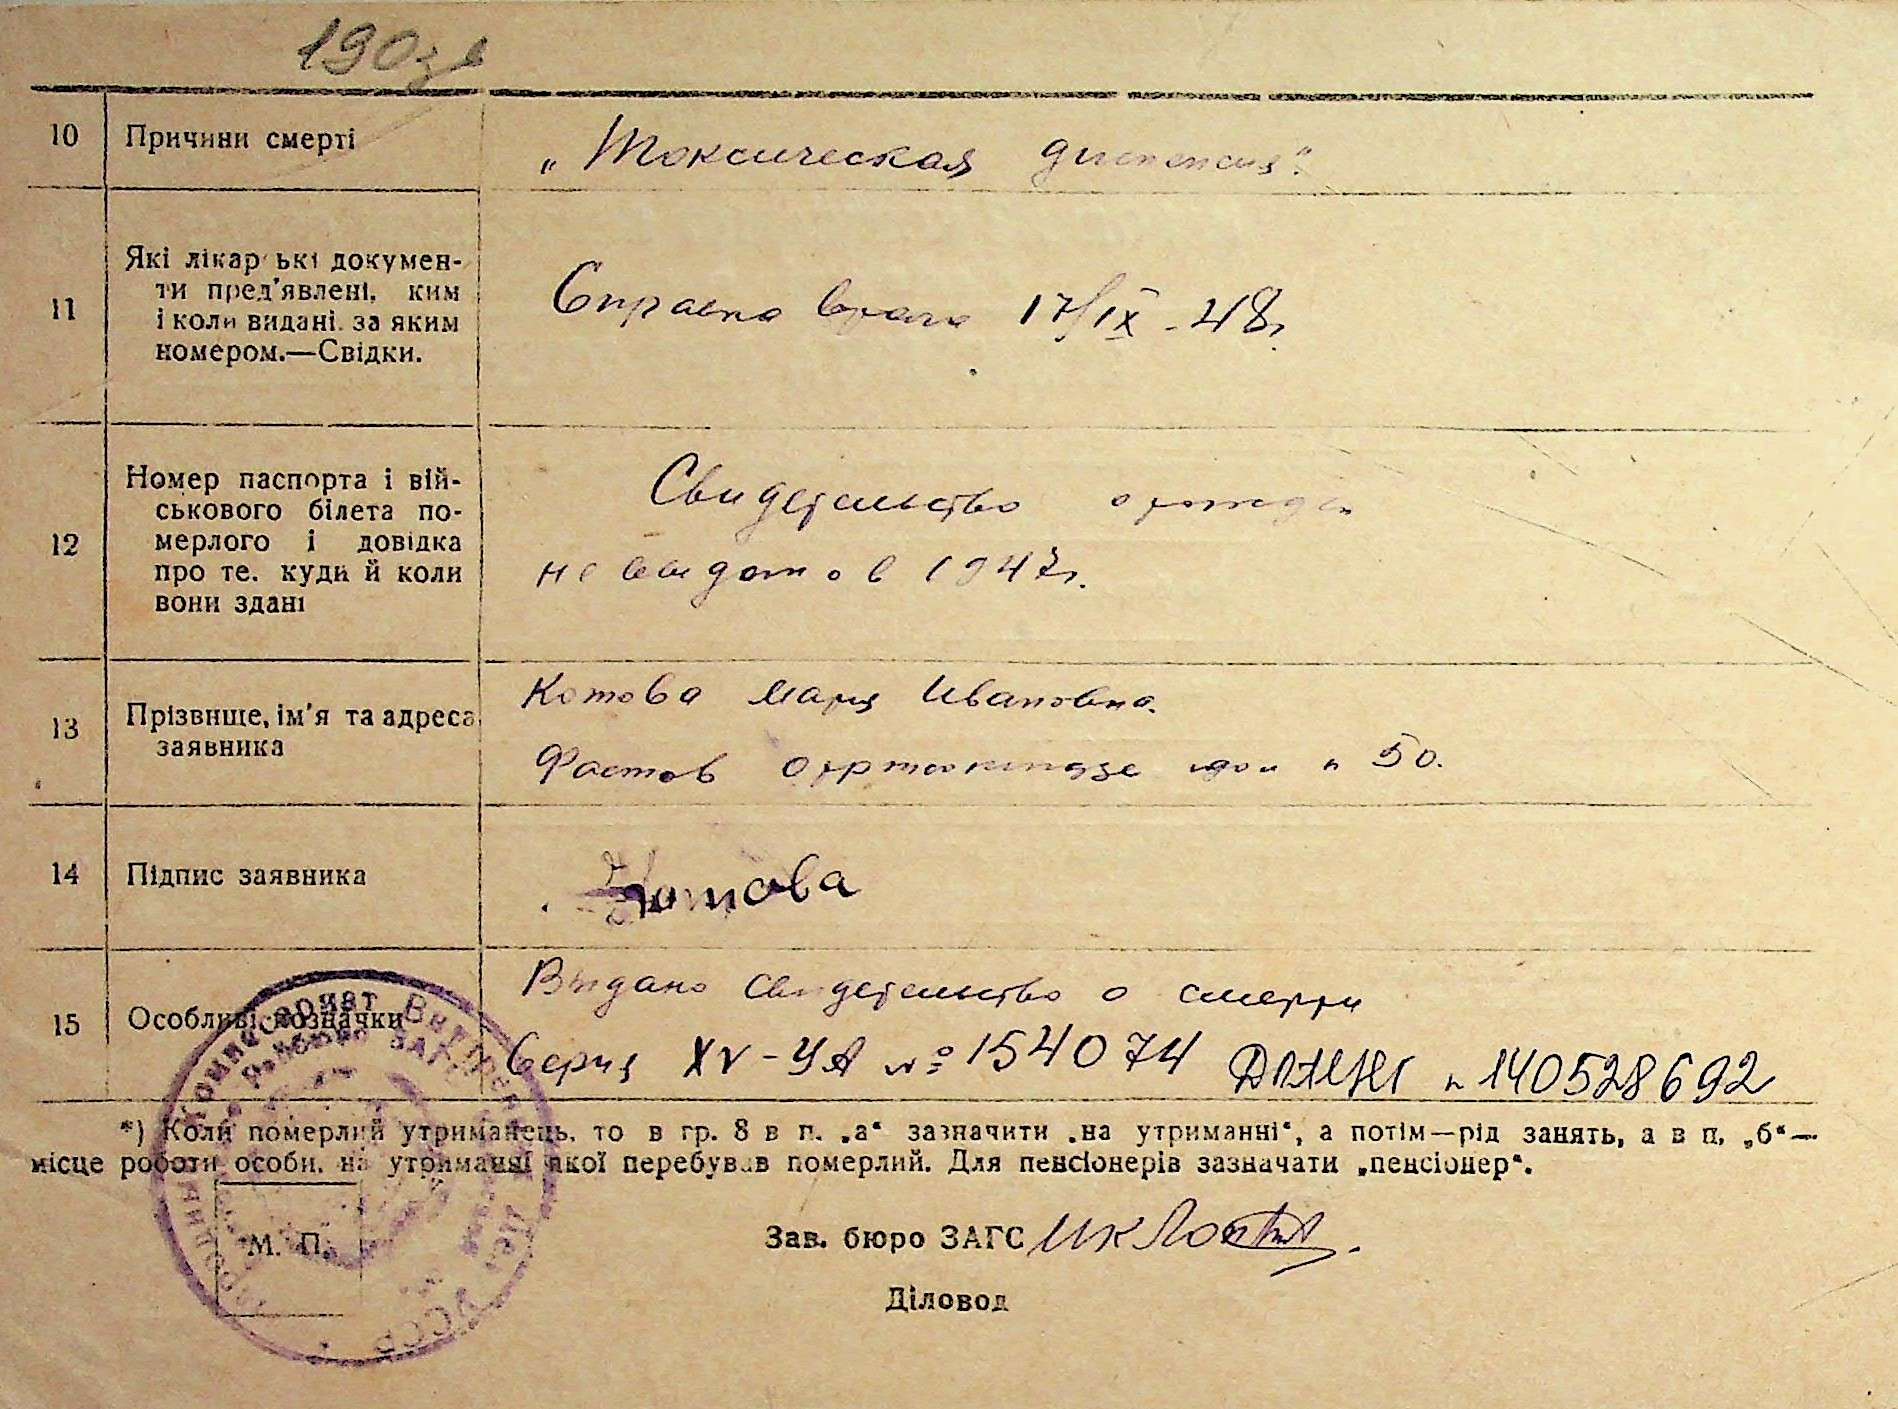 190
10 Причини смерті „Токсическая диспепсия".
11 Які лікарські докумен-
ти пред'явлені, ким
і коли видані, за яким
номером.—Свідки.
Справка врача 17/IX-48г.
12 Номер паспорта і вій-
ськового білета по-
мерлого і довідка
про те, куди й коли
вони здані
Свидетельство о рожден
не видано в 1947г.
13 Прізвище, ім'я та адреса
заявника
Котова Мария Ивановна.
Фастов Орджоникидзе дом н 50.
14 Підпис заявника Котова
15 Особливі позначки
Выдано свидетельство о смерти
Серия XV-УА № 154074 н 140528692
*) Коли померлий утриманець, то в гр. 8 в п. „а" зазначити „на утриманні", а потім—рід занять, а в п. „б"—
місце роботи особи, на утриманні якої перебував померлий. Для пенсіонерів зазначати „пенсіонер".
М. П.
Зав. бюро ЗАГС
Діловод